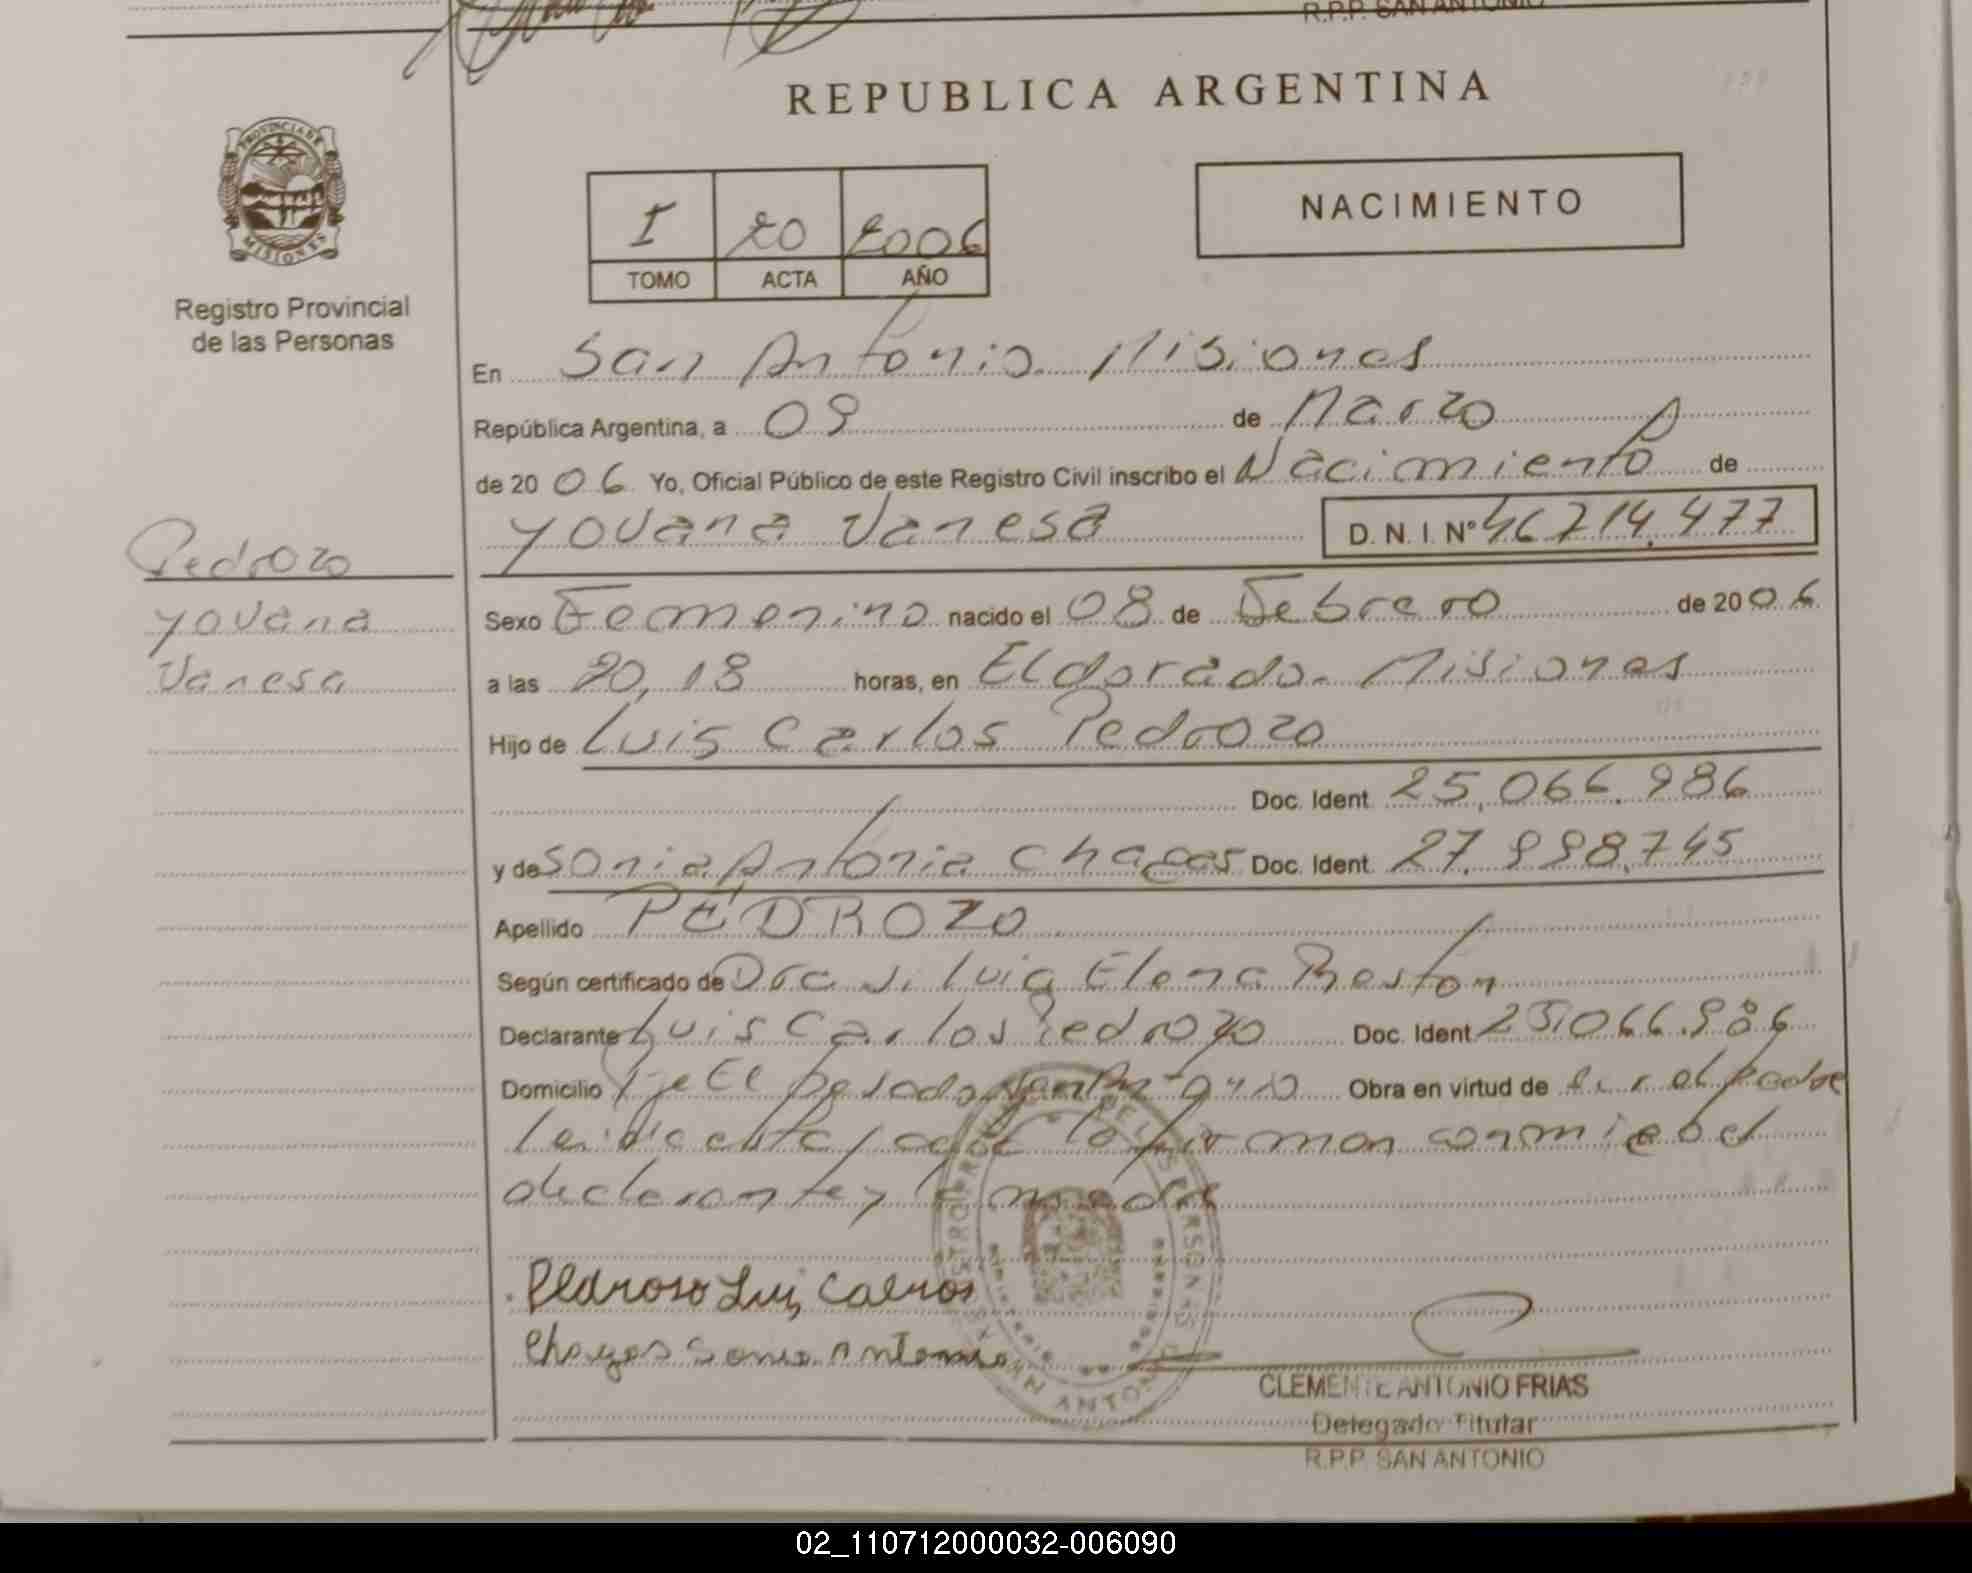 R.P.P. SAN ANTONIO
REPUBLICA ARGENTINA
PROVINCIA DE MISIONES
Registro Provincial
de las Personas
I 20 2006
TOMO ACTA AÑO
NACIMIENTO
En San Antonio. Misiones
República Argentina, a 09 de Marzo
de 2006 Yo, Oficial Público de este Registro Civil inscribo el Nacimiento de
Yovana Vanesa D.N.I. Nº 46714.477
Pedrozo
Yovana
Vanesa
Sexo Femenino nacido el 08 de Febrero de 2006
a las 20,18 horas, en Eldorado. Misiones
Hijo de Luis Carlos Pedrozo
Doc. Ident. 25.066.986
y de Sonia Antonia Chagas Doc. Ident. 27.998.745
Apellido PEDROZO
Según certificado de Dra Elena
Declarante Luis Carlos Pedrozo Doc. Ident. 25.066.986
Domicilio San Antonio Obra en virtud de el padre
Leida esta acta la firman conmigo el
declarante y la madre
Pedroso Luis Carlos
Chagas Sonia Antonia
CLEMENTE ANTONIO FRIAS
Delegado Titular
R.P.P. SAN ANTONIO
02_110712000032-006090